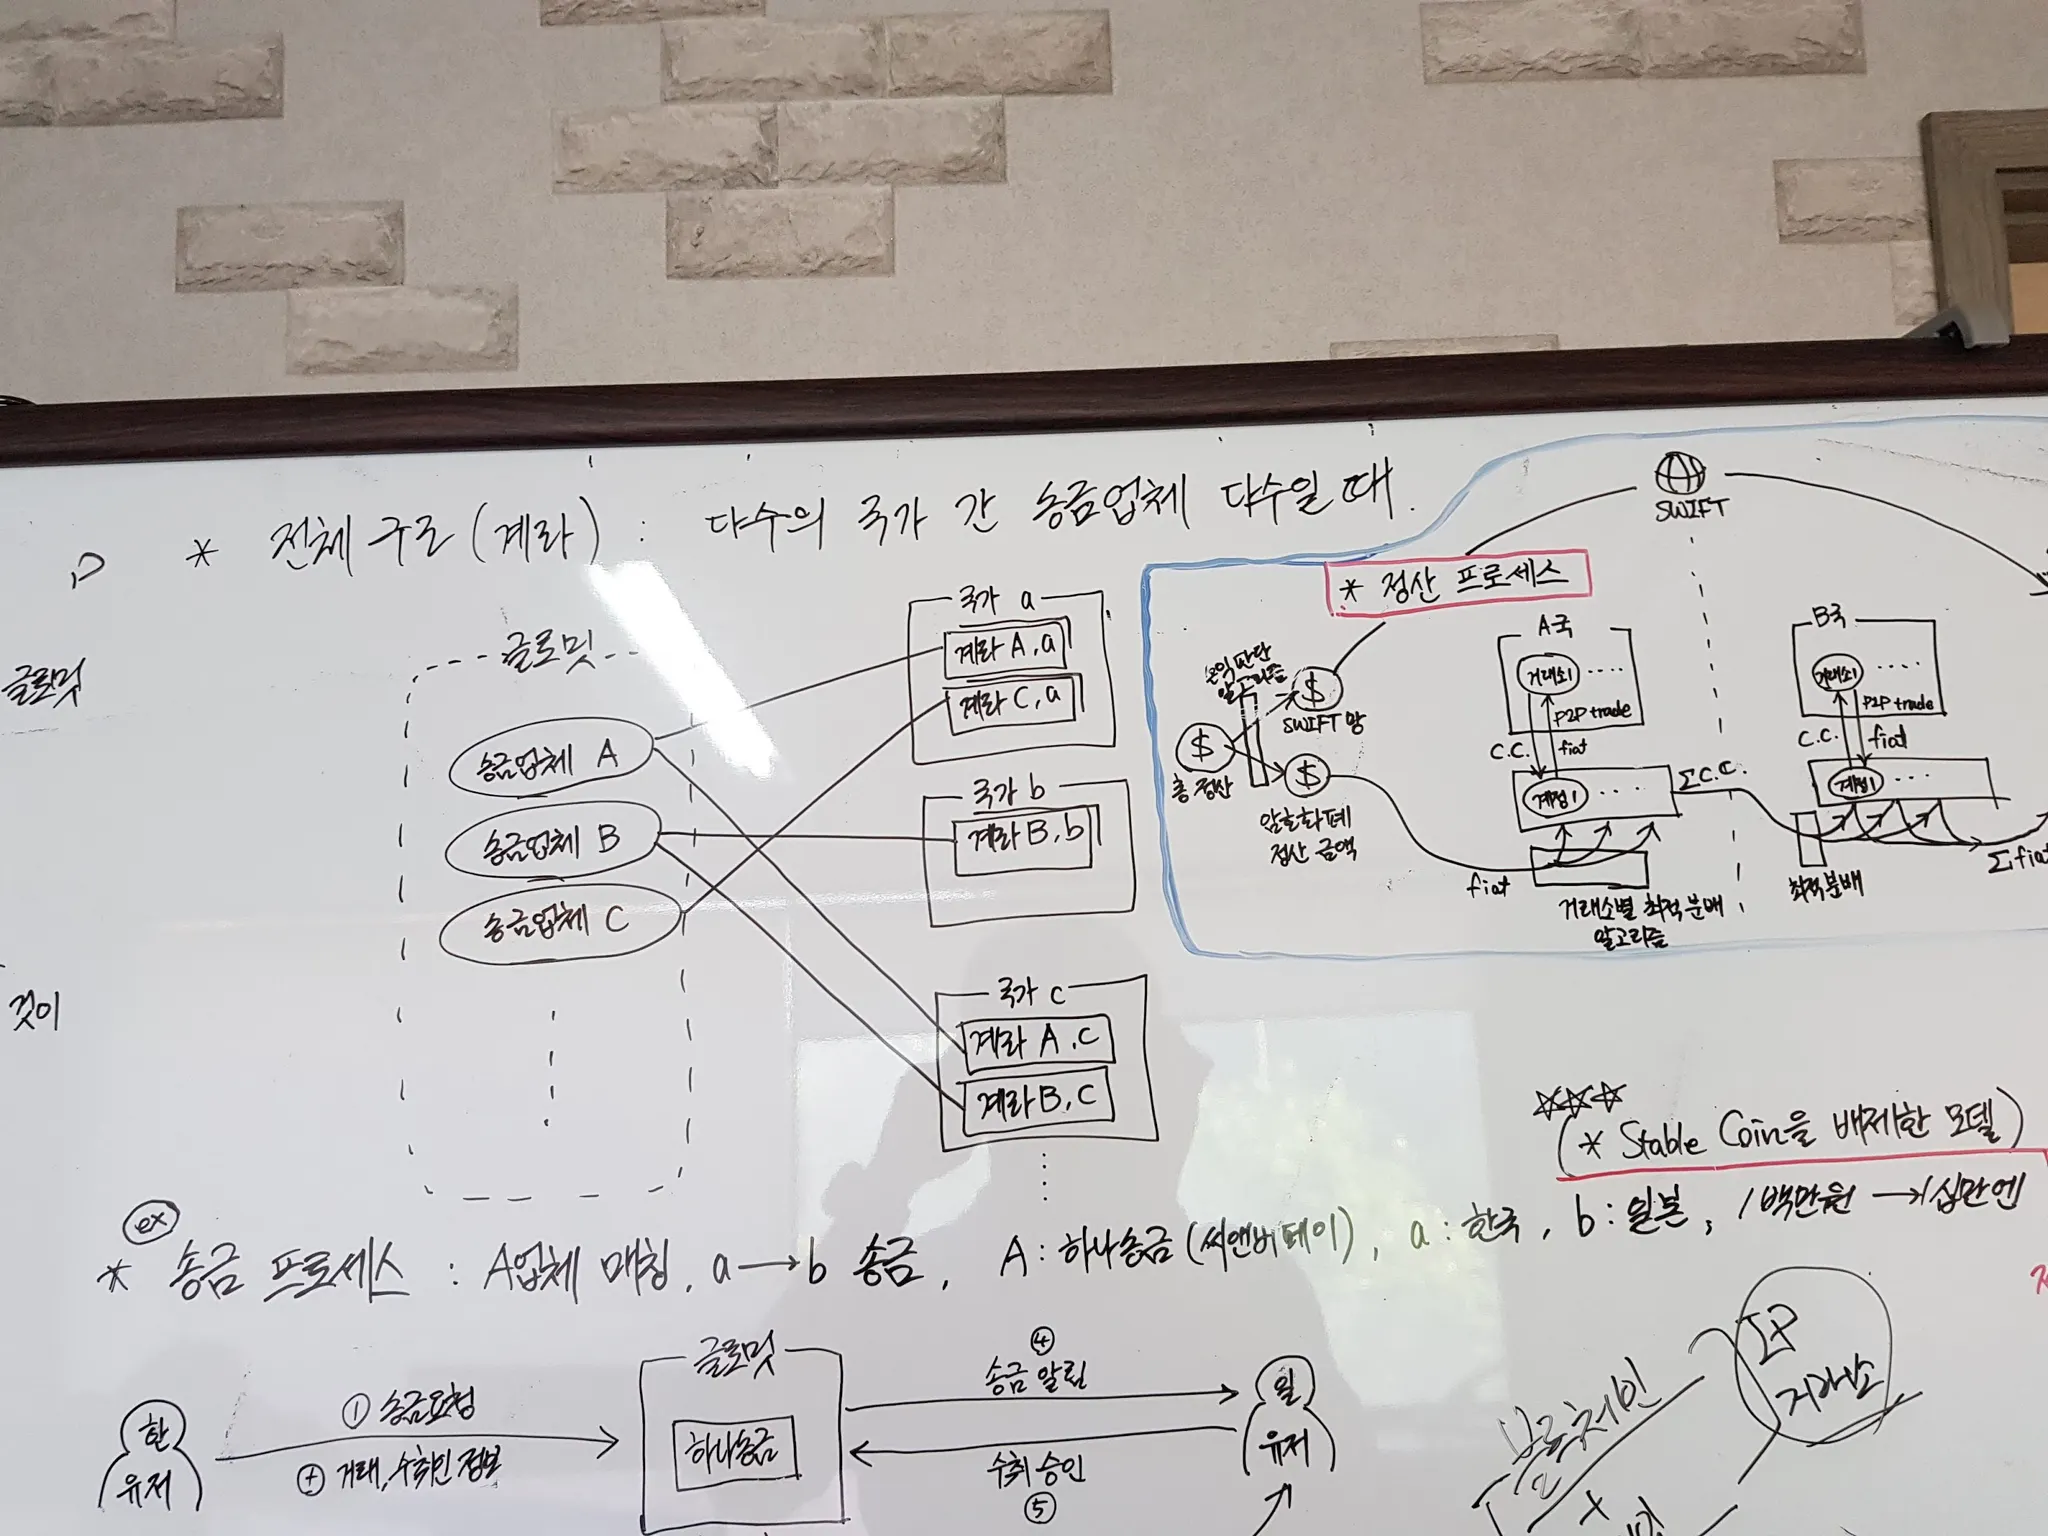 * 전체 구조 (계좌) : 다수의 국가 간 송금업체 다수일 때.
글로밋
것이
글로밋
송금업체 A
송금업체 B
송금업체 C
국가 a
계좌 A, a
계좌 C, a
국가 b
계좌 B, b
국가 c
계좌 A, C
계좌 B, C
SWIFT
* 정산 프로세스
손익판단
알고리즘
$
SWIFT 망
$
총 정산
$
암호화폐
정산 금액
A국
거래소1 ....
P2P trade
C.C.
fiat
계정1 ....
Σ C.C.
fiat
거래소별 최적 분배
알고리즘
B국
거래소1 ....
P2P trade
C.C.
fiat
계정1 ...
최적분배
Σ fiat
(* Stable Coin을 배제한 모델)
ex
* 송금 프로세스 : A업체 매칭, a → b 송금, A : 하나송금 (씨앤비페이), a : 한국, b : 일본, 1백만원 → 십만엔
한
유저
① 송금요청
+ 거래, 수취인 정보
글로밋
하나송금
④
송금 알림
수취 승인
⑤
일
유저